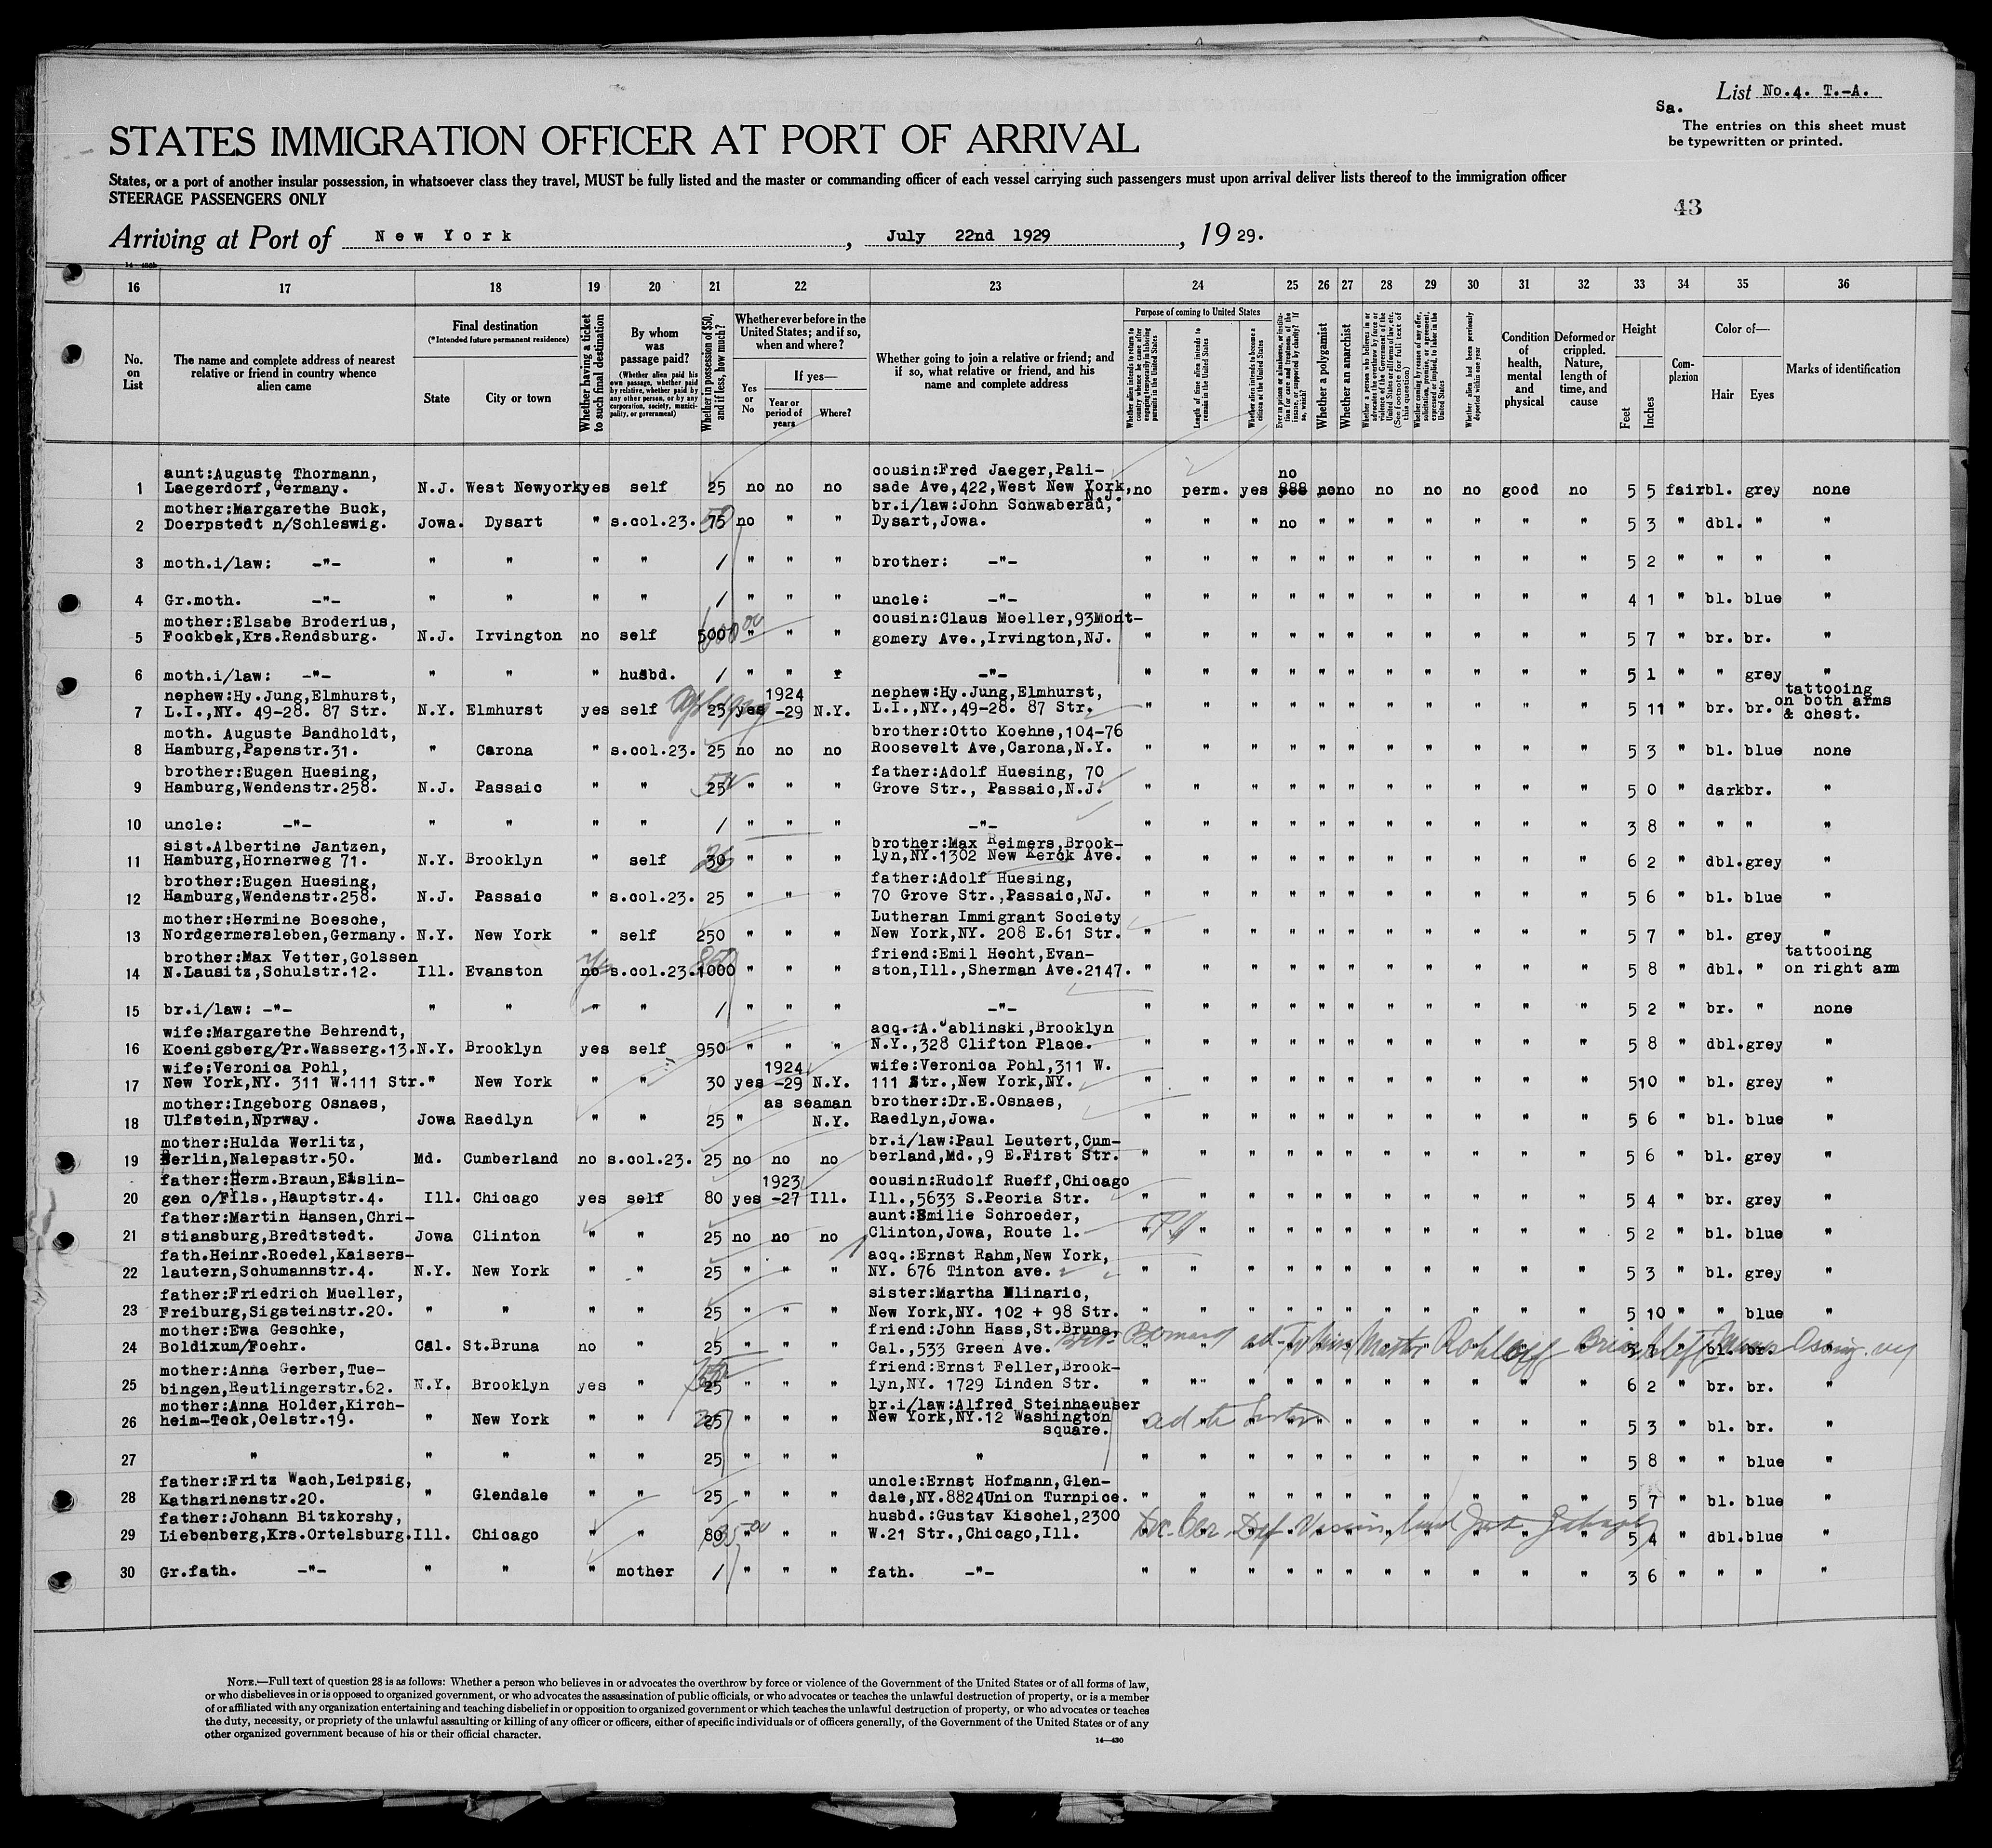 List No.4. T.-A.
Sa.
The entries on this sheet must
be typewritten or printed.
STATES IMMIGRATION OFFICER AT PORT OF ARRIVAL
States, or a port of another insular possession, in whatsoever class they travel, MUST be fully listed and the master or commanding officer of each vessel carrying such passengers must upon arrival deliver lists thereof to the immigration officer
STEERAGE PASSENGERS ONLY
43
Arriving at Port of New York, July 22nd 1929, 19 29.
16 17 18 19 20 21 22 23 24 25 26 27 28 29 30 31 32 33 34 35 36
No. on List
The name and complete address of nearest relative or friend in country whence alien came
Final destination (*Intended future permanent residence)
State
City or town
Whether having a ticket to such final destination
By whom was passage paid?
(Whether alien paid his own passage, whether paid by relative, whether paid by any other person, or by any corporation, society, municipality, or government)
Whether in possession of $50, and if less, how much?
Whether ever before in the United States; and if so, when and where?
Yes or No
If yes—
Year or period of years
Where?
Whether going to join a relative or friend; and if so, what relative or friend, and his name and complete address
Purpose of coming to United States
Whether alien intends to return to country whence he came after engaging temporarily in laboring pursuits in the United States
Length of time alien intends to remain in the United States
Whether alien intends to become a citizen of the United States
Whether a polygamist
Whether an anarchist
Whether alien had been previously deported within one year
Condition of health, mental and physical
Deformed or crippled. Nature, length of time, and cause
Height
Feet
Inches
Complexion
Color of—
Hair
Eyes
Marks of identification
1 aunt:Auguste Thormann, Laegerdorf,Germany. N.J. West Newyork yes self 25 no no no cousin:Fred Jaeger,Palisade Ave,422,West New York, N.J. no perm. yes no no no no no no good no 5 5 fair bl. grey none
2 mother:Margarethe Buck, Doerpstedt n/Schleswig. Jowa. Dysart " s.col.23. 75 no " " br.i/law:John Schwaberau, Dysart,Jowa. " " " no " " " " " " " 5 3 " dbl. " "
3 moth.i/law: -"- " " " " / " " " brother: -"- " " " " " " " " " " " 5 2 " " " "
4 Gr.moth. -"- " " " " / " " " uncle: -"- " " " " " " " " " " " 4 1 " bl. blue "
5 mother:Elsabe Broderius, Fockbek,Krs.Rendsburg. N.J. Irvington no self 500 " " " cousin:Claus Moeller,93Montgomery Ave.,Irvington,NJ. " " " " " " " " " " " 5 7 " br. br. "
6 moth.i/law: -"- " " " husbd. / " " " -"- " " " " " " " " " " " 5 1 " " grey "
7 nephew:Hy.Jung,Elmhurst, L.I.,NY. 49-28. 87 Str. N.Y. Elmhurst yes self 25 yes 1924 -29 N.Y. nephew:Hy.Jung,Elmhurst, L.I.,NY.,49-28. 87 Str. " " " " " " " " " " " 5 11 " br. br. tattooing on both arms & chest.
8 moth. Auguste Bandholdt, Hamburg,Papenstr.31. " Carona " s.col.23. 25 no no no brother:Otto Koehne,104-76 Roosevelt Ave,Carona,N.Y. " " " " " " " " " " " 5 3 " bl. blue none
9 brother:Eugen Huesing, Hamburg,Wendenstr.258. N.J. Passaic " " 25 " " " father:Adolf Huesing, 70 Grove Str., Passaic,N.J. " " " " " " " " " " " 5 0 " dark br. "
10 uncle: -"- " " " " / " " " -"- " " " " " " " " " " " 3 8 " " " "
11 sist.Albertine Jantzen, Hamburg,Hornerweg 71. N.Y. Brooklyn " self 30 " " " brother:Max Reimers,Brooklyn,NY.1302 New Kerck Ave. " " " " " " " " " " " 6 2 " dbl. grey "
12 brother:Eugen Huesing, Hamburg,Wendenstr.258. N.J. Passaic " s.col.23. 25 " " " father:Adolf Huesing, 70 Grove Str.,Passaic,NJ. " " " " " " " " " " " 5 6 " bl. blue "
13 mother:Hermine Boesche, Nordgermersleben,Germany. N.Y. New York " self 250 " " " Lutheran Immigrant Society New York,NY. 208 E.61 Str. " " " " " " " " " " " 5 7 " bl. grey "
14 brother:Max Vetter,Golssen N.Lausitz,Schulstr.12. Ill. Evanston no s.col.23. 1000 " " " friend:Emil Hecht,Evanston,Ill.,Sherman Ave.2147. " " " " " " " " " " " 5 8 " dbl. " tattooing on right arm
15 br.i/law: -"- " " " " / " " " -"- " " " " " " " " " " " 5 2 " br. " none
16 wife:Margarethe Behrendt, Koenigsberg/Pr.Wasserg.13. N.Y. Brooklyn yes self 950 " " " acq.:A.Jablinski,Brooklyn N.Y.,328 Clifton Place. " " " " " " " " " " " 5 8 " dbl. grey "
17 wife:Veronica Pohl, New York,NY. 311 W.111 Str. " New York " " 30 yes 1924 -29 N.Y. wife:Veronica Pohl,311 W. 111 Str.,New York,NY. " " " " " " " " " " " 5 10 " bl. grey "
18 mother:Ingeborg Osnaes, Ulfstein,Nprway. Jowa Raedlyn " " 25 " as seaman N.Y. brother:Dr.E.Osnaes, Raedlyn,Jowa. " " " " " " " " " " " 5 6 " bl. blue "
19 mother:Hulda Werlitz, Berlin,Nalepastr.50. Md. Cumberland no s.col.23. 25 no no no br.i/law:Paul Leutert,Cumberland,Md.,9 E.First Str. " " " " " " " " " " " 5 6 " bl. grey "
20 father:Herm.Braun,Eislingen o/Fils.,Hauptstr.4. Ill. Chicago yes self 80 yes 1923 -27 Ill. cousin:Rudolf Rueff,Chicago Ill.,5633 S.Peoria Str. " " " " " " " " " " " 5 4 " br. grey "
21 father:Martin Hansen,Christiansburg,Bredtstedt. Jowa Clinton " " 25 no no no aunt:Emilie Schroeder, Clinton,Jowa, Route 1. " " " " " " " " " " " 5 2 " bl. blue "
22 fath.Heinr.Roedel,Kaiserslautern,Schumannstr.4. N.Y. New York " " 25 " " " acq.:Ernst Rahm,New York, NY. 676 Tinton ave. " " " " " " " " " " " 5 3 " bl. grey "
23 father:Friedrich Mueller, Freiburg,Sigsteinstr.20. " " " " 25 " " " sister:Martha Mlinaric, New York,NY. 102 + 98 Str. " " " " " " " " " " " 5 10 " " blue "
24 mother:Ewa Geschke, Boldixum/Foehr. Cal. St.Bruna no " 25 " " " friend:John Hass,St.Bruna, Cal.,533 Green Ave. " " " " " " " " " " " bl. br.
25 mother:Anna Gerber,Tuebingen,Reutlingerstr.62. N.Y. Brooklyn yes " 25 " " " friend:Ernst Feller,Brooklyn,NY. 1729 Linden Str. " " " " " " " " " " " 6 2 " br. br. "
26 mother:Anna Holder,Kirchheim-Teck,Oelstr.19. " New York " " 25 " " " br.i/law:Alfred Steinhaeuser New York,NY.12 Washington square. ad to sister " " " " " " " " " " " 5 3 " bl. br. "
27 " " " " " 25 " " " " " " " " " " " " " " " " 5 8 " " blue "
28 father:Fritz Wach,Leipzig, Katharinenstr.20. " Glendale " " 25 " " " uncle:Ernst Hofmann,Glendale,NY.8824Union Turnpice. " " " " " " " " " " " 5 7 " bl. blue "
29 father:Johann Bitzkorshy, Liebenberg,Krs.Ortelsburg. Ill. Chicago " " 80 " " " husbd.:Gustav Kischel,2300 W.21 Str.,Chicago,Ill. " " " " " " " " 5 4 " dbl. blue "
30 Gr.fath. -"- " " " mother / " " " fath. -"- " " " " " " " " " " " 3 6 " " " "
NOTE.—Full text of question 28 is as follows: Whether a person who believes in or advocates the overthrow by force or violence of the Government of the United States or of all forms of law,
or who disbelieves in or is opposed to organized government, or who advocates the assassination of public officials, or who advocates or teaches the unlawful destruction of property, or is a member
of or affiliated with any organization entertaining and teaching disbelief in or opposition to organized government or which teaches the unlawful destruction of property, or who advocates or teaches
the duty, necessity, or propriety of the unlawful assaulting or killing of any officer or officers, either of specific individuals or of officers generally, of the Government of the United States or of any
other organized government because of his or their official character.
14—430